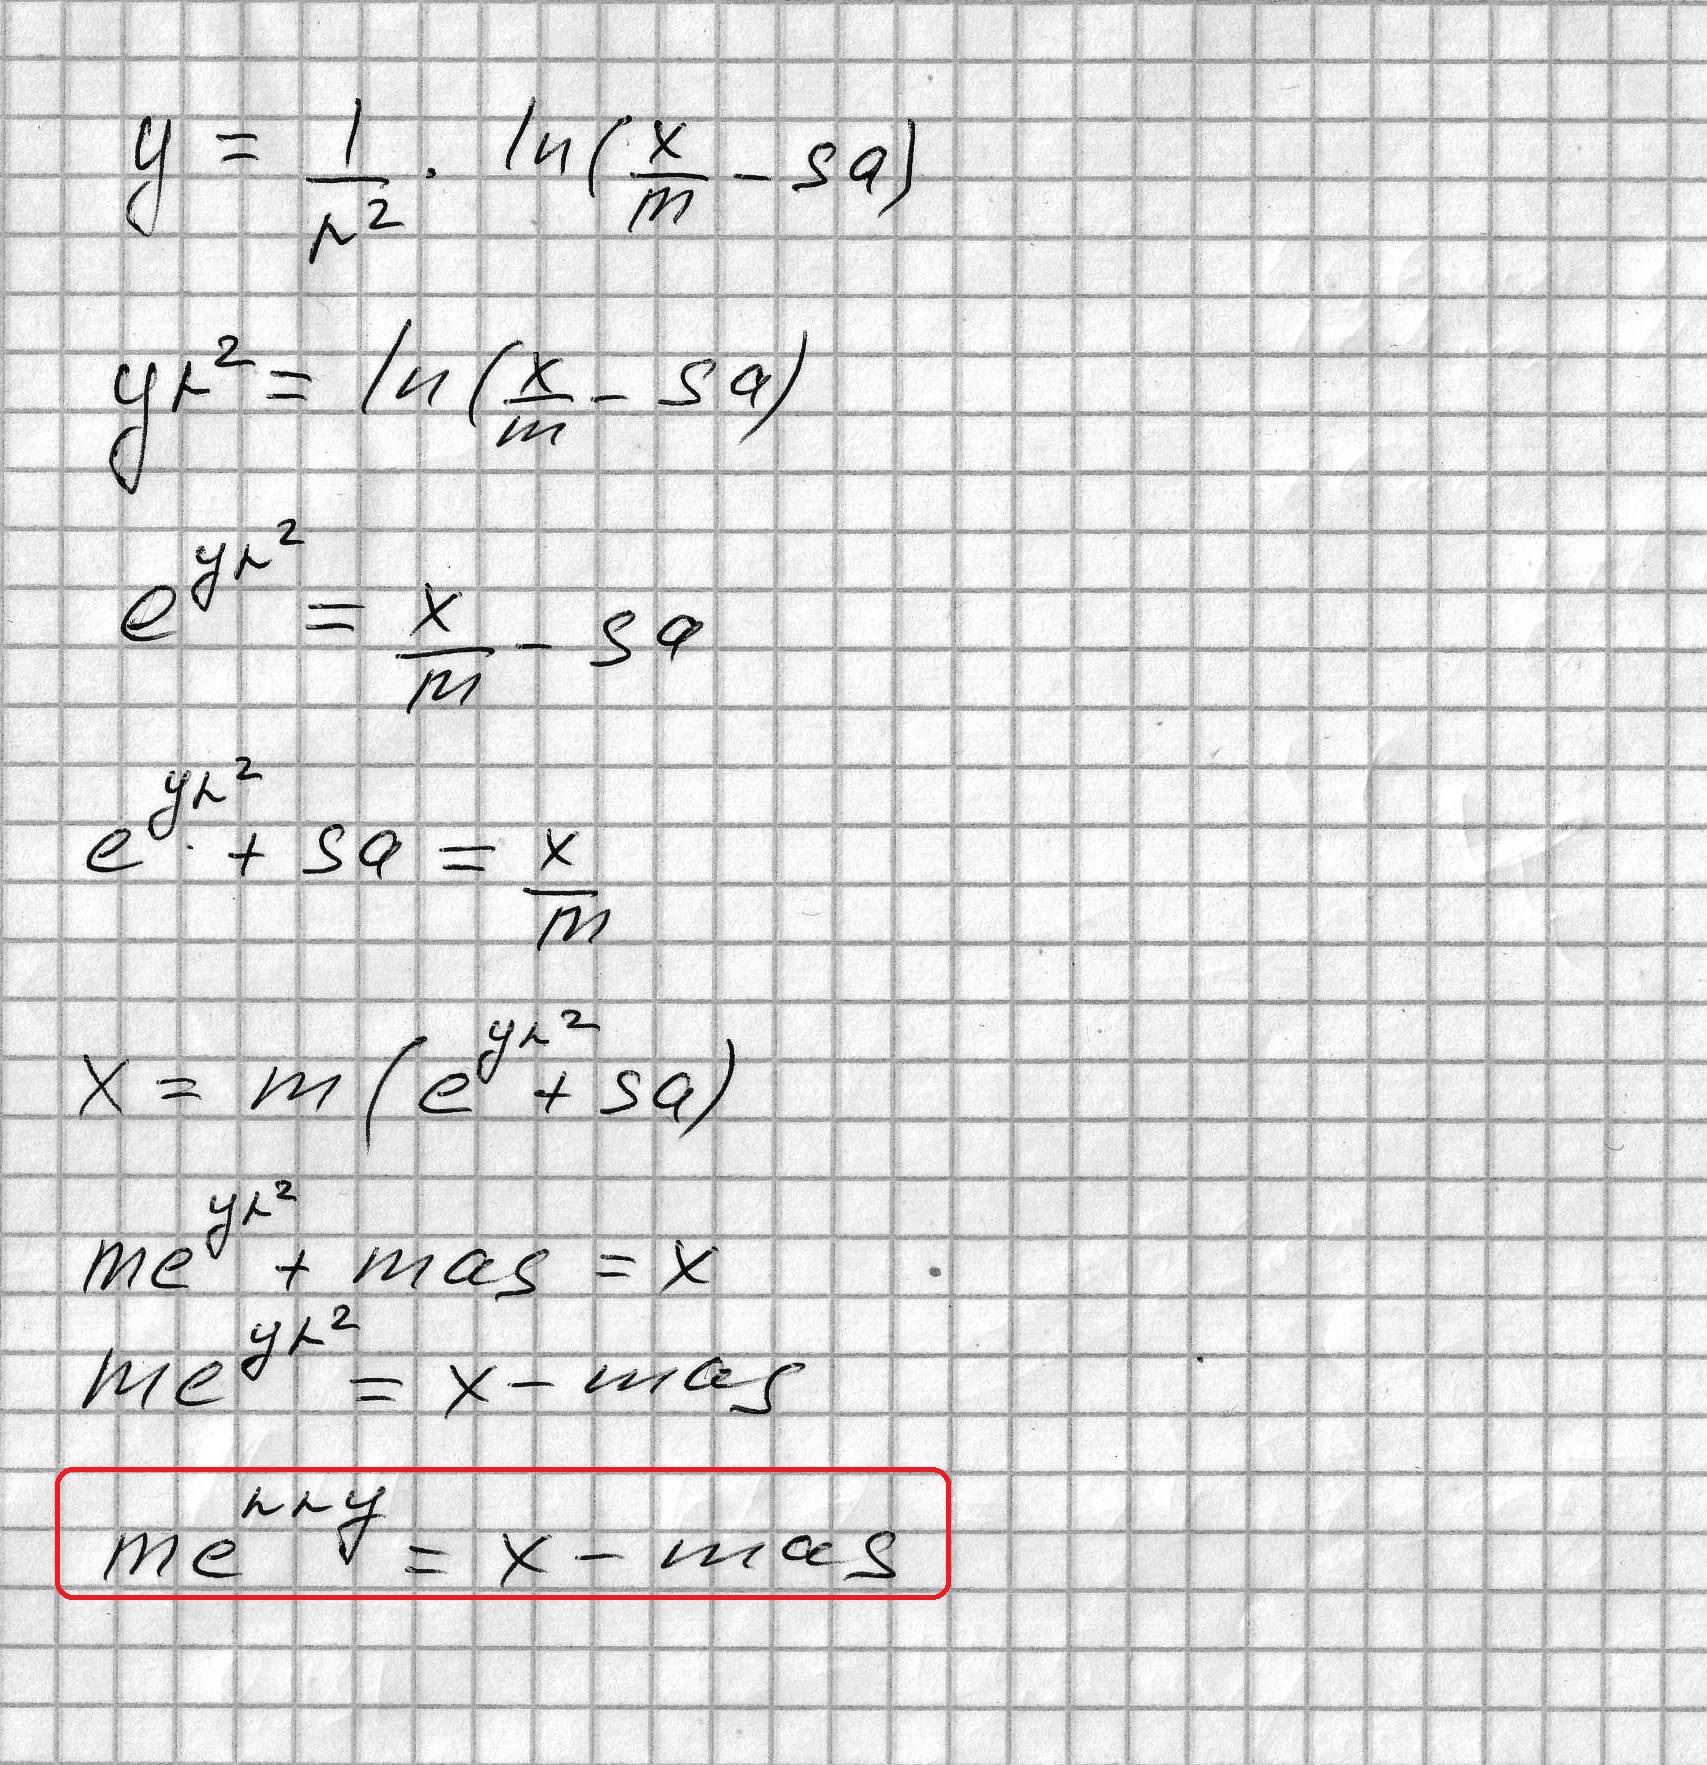 y = 1/r² · ln(x/m - sa)
yr² = ln(x/m - sa)
e^(yr²) = x/m - sa
e^(yr²) + sa = x/m
x = m(e^(yr²) + sa)
me^(yr²) + mas = x
me^(yr²) = x - mas
me^(rry) = x - mas